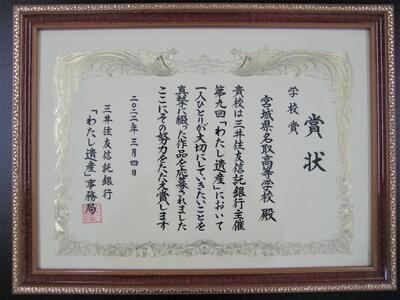 賞状
学校賞
宮城県名取高等学校 殿
貴校は三井住友信託銀行主催
第九回「わたし遺産」において
一人ひとりが大切にしていきたいことを
真摯に綴った作品を応募されました
ここにその努力をたたえ賞します
二〇二二年 三月四日
三井住友信託銀行
「わたし遺産」事務局